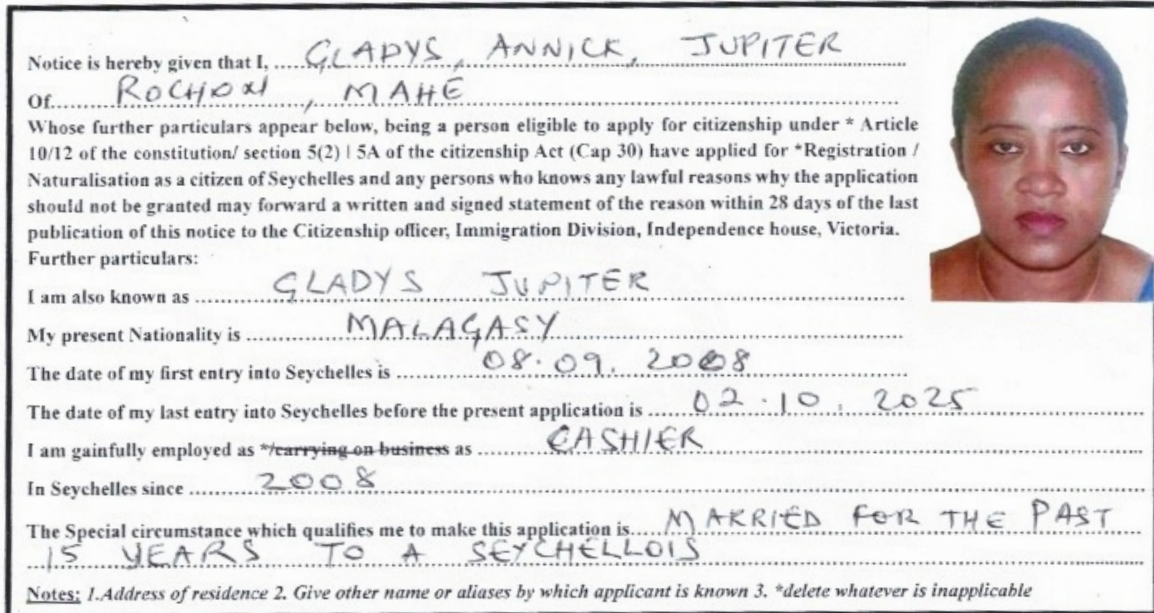 Notice is hereby given that I, GLADYS, ANNICK, JUPITER
Of ROCHON, MAHE
Whose further particulars appear below, being a person eligible to apply for citizenship under * Article
10/12 of the constitution/ section 5(2) | 5A of the citizenship Act (Cap 30) have applied for *Registration /
Naturalisation as a citizen of Seychelles and any persons who knows any lawful reasons why the application
should not be granted may forward a written and signed statement of the reason within 28 days of the last
publication of this notice to the Citizenship officer, Immigration Division, Independence house, Victoria.
Further particulars:
I am also known as GLADYS JUPITER
My present Nationality is MALAGASY
The date of my first entry into Seychelles is 08.09.2008
The date of my last entry into Seychelles before the present application is 02.10.2025
I am gainfully employed as */carrying on business as CASHIER
In Seychelles since 2008
The Special circumstance which qualifies me to make this application is MARRIED FOR THE PAST
15 YEARS TO A SEYCHELLOIS
Notes: 1.Address of residence 2. Give other name or aliases by which applicant is known 3. *delete whatever is inapplicable